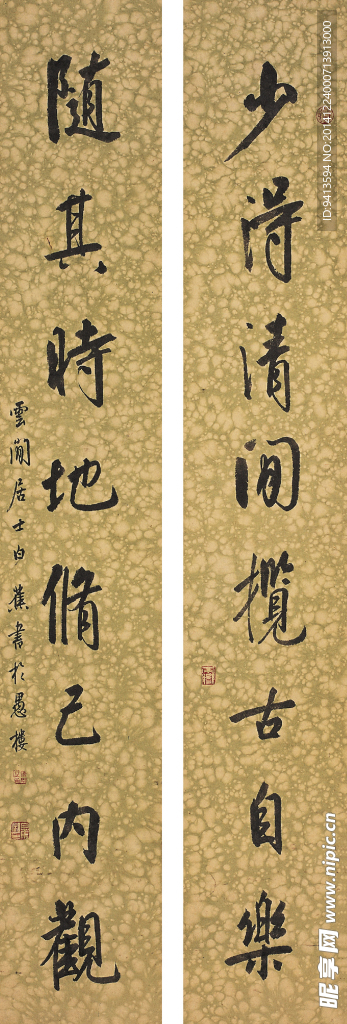 少得清閒攬古自樂
隨其時地脩己內觀
雲間居士白蕉書於愚樓
ID:9413594 NO:20141224000713913000
昵享网 www.nipic.cn